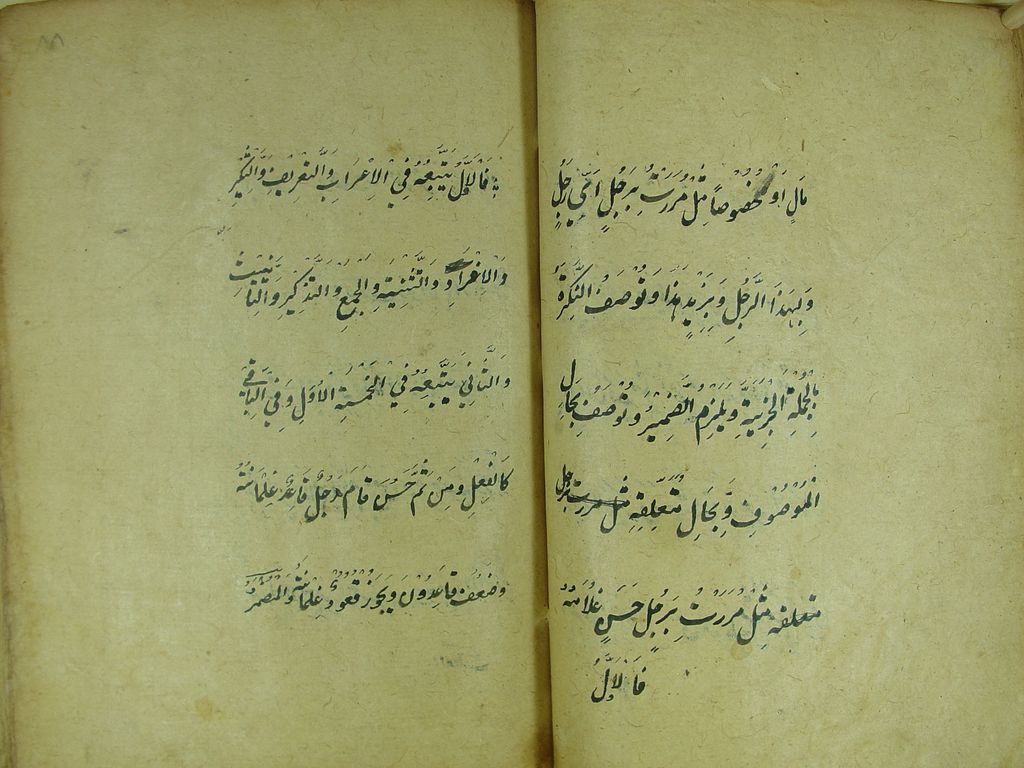 مَالٍ اَوْ مخصُوصاً مِثْلُ مَرَرْتُ بِرَجُلٍ اَيِّ رَجُلٍ
وَبِهٰذَا الرَّجُلِ وَبِزَيْدٍ هٰذَا وَتُوصَفُ النَّكِرَةُ
بِالْجُمْلَةِ الْخَبَرِيَّةِ وَيَلْزَمُ الضَّمِيْرُ وَتُوصَفُ بِحَالِ
الْمَوْصُوفِ وَبِحَالِ مُتَعَلِّقِهِ مِثْلُ مررت برجل
متعلقه مِثْلُ مَرَرْتُ بِرَجُلٍ حَسَنٍ غُلَامُهُ
فَالْاَوَّلُ
فَالْاَوَّلُ يَتْبَعُهُ فِي الْاِعْرَابِ وَالتَّعْرِيْفِ وَالتَّنْكِيْرِ
وَالْاِفْرَادِ وَالتَّثْنِيَةِ وَالْجَمْعِ وَالتَّذْكِيْرِ وَالتَّانِيْثِ
وَالثَّانِيْ يَتْبَعُهُ فِي الْخَمْسَةِ الْاُوَلِ وَفِي الْبَاقِيْ
كَالْفِعْلِ وَمِنْ ثَمَّ حَسُنَ قَامَ رَجُلٌ قَاعِدٌ غِلْمَانُهُ
وَضَعُفَ قَاعِدُوْنَ وَيَجُوْزُ قُعُوْدٌ غِلْمَانُهُ وَالْمُضْمَرُ